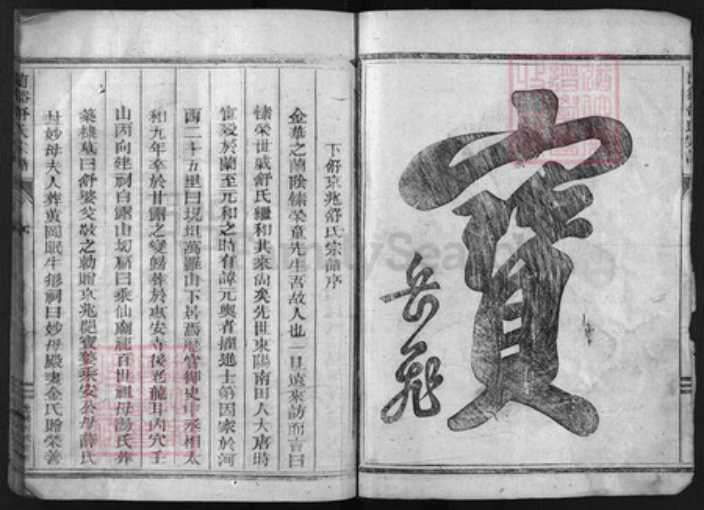 寶
岳飛
下舒京兆舒氏宗譜序
金華之蘭陰榛榮童先生吾故人也一日遠來訪而言曰
榛榮世戚舒氏繼和其來尚矣先世東陽南田人大唐時
宦遊於蘭至元和之時有諱元輿者擢進士第因家於河
西二十五里曰 坦萬羅山下居焉 官御史中丞相太
和九年卒於甘露之變歸葬於惠安寺後老龍耳丙穴壬
山丙向建祠白露山 扁曰乘仙廟祀百世祖母湯氏葬
葉 墓曰舒婆 敬之勅贈京兆 寶婺乘安公母薛氏
妙母夫人葬黃岡眠牛形祠曰妙母殿妻金氏贈榮善
蘭谿舒氏宗譜
FamilySearch